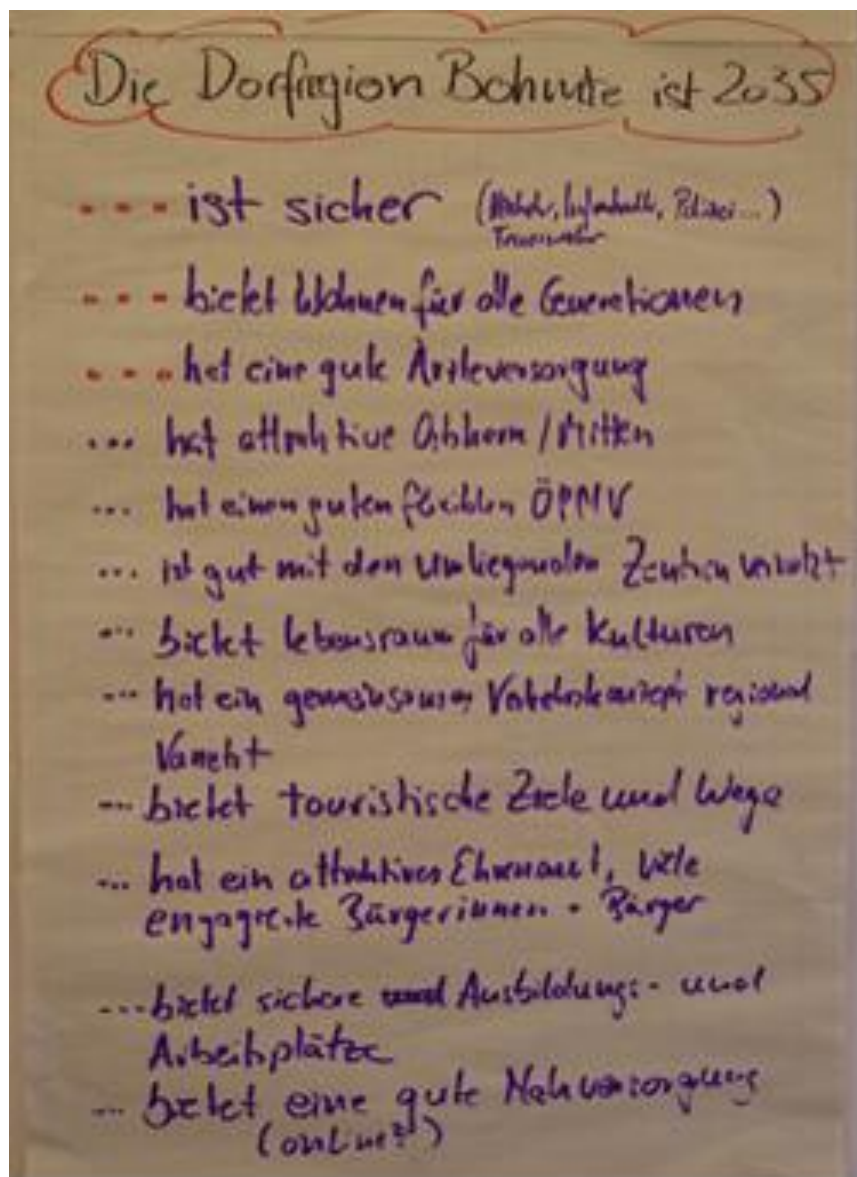 Die Dorfregion Bohmte ist 2035
... ist sicher (Polizei...)
Feuerwehr
... bietet Wohnen für alle Generationen
... hat eine gute Ärzteversorgung
... hat attraktive Ortskerne / Mitten
... hat einen guten flexiblen ÖPNV
... ist gut mit den umliegenden Zentren vernetzt
... bietet Lebensraum für alle Kulturen
... hat ein gemeinsames Verkehrskonzept regional
... bietet touristische Ziele und Wege
... hat ein attraktives Ehrenamt, viele
engagierte Bürgerinnen + Bürger
... bietet sichere Ausbildungs- und
Arbeitsplätze
... bietet eine gute Nahversorgung
(online?)